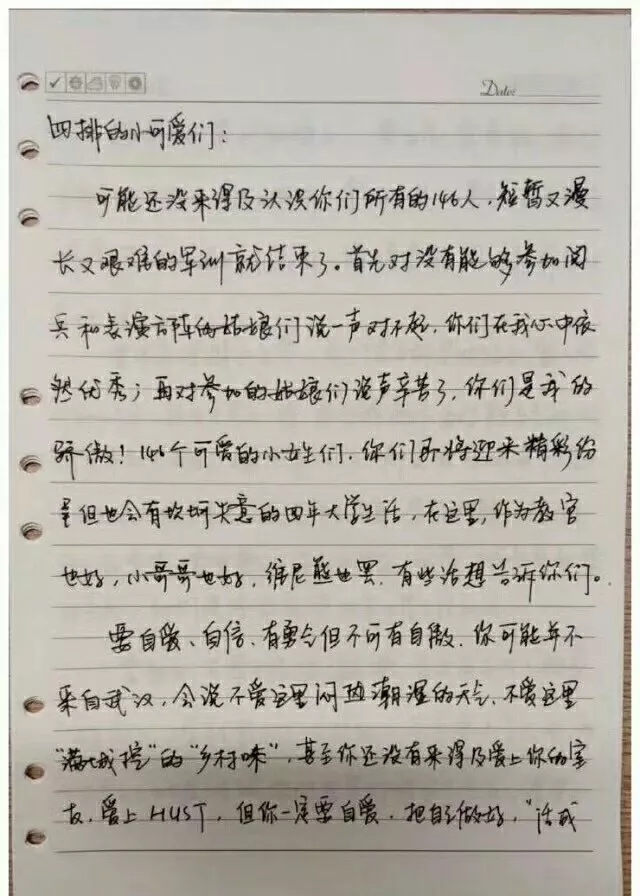 Date:
四排的小可爱们：
可能还没来得及认识你们所有的146人，短暂又漫
长又艰难的军训就结束了。首先对没有能够参加阅
兵和表演方阵的姑娘们说一声对不起，你们在我心中依
然优秀；再对参加的姑娘们说声辛苦了，你们是我的
骄傲！146个可爱的小女生们，你们即将迎来精彩纷
呈但也会有坎坷失意的四年大学生活，在这里，作为教官
也好，小哥哥也好，维尼熊也罢，有些话想告诉你们。
要自爱、自信、有勇气但不可有自傲。你可能并不
来自武汉，会说不爱这里闷热潮湿的天气，不爱这里
“满城挖”的“乡村味”，甚至你还没有来得及爱上你的室
友，爱上HUST，但你一定要自爱，把自己做好，“活成